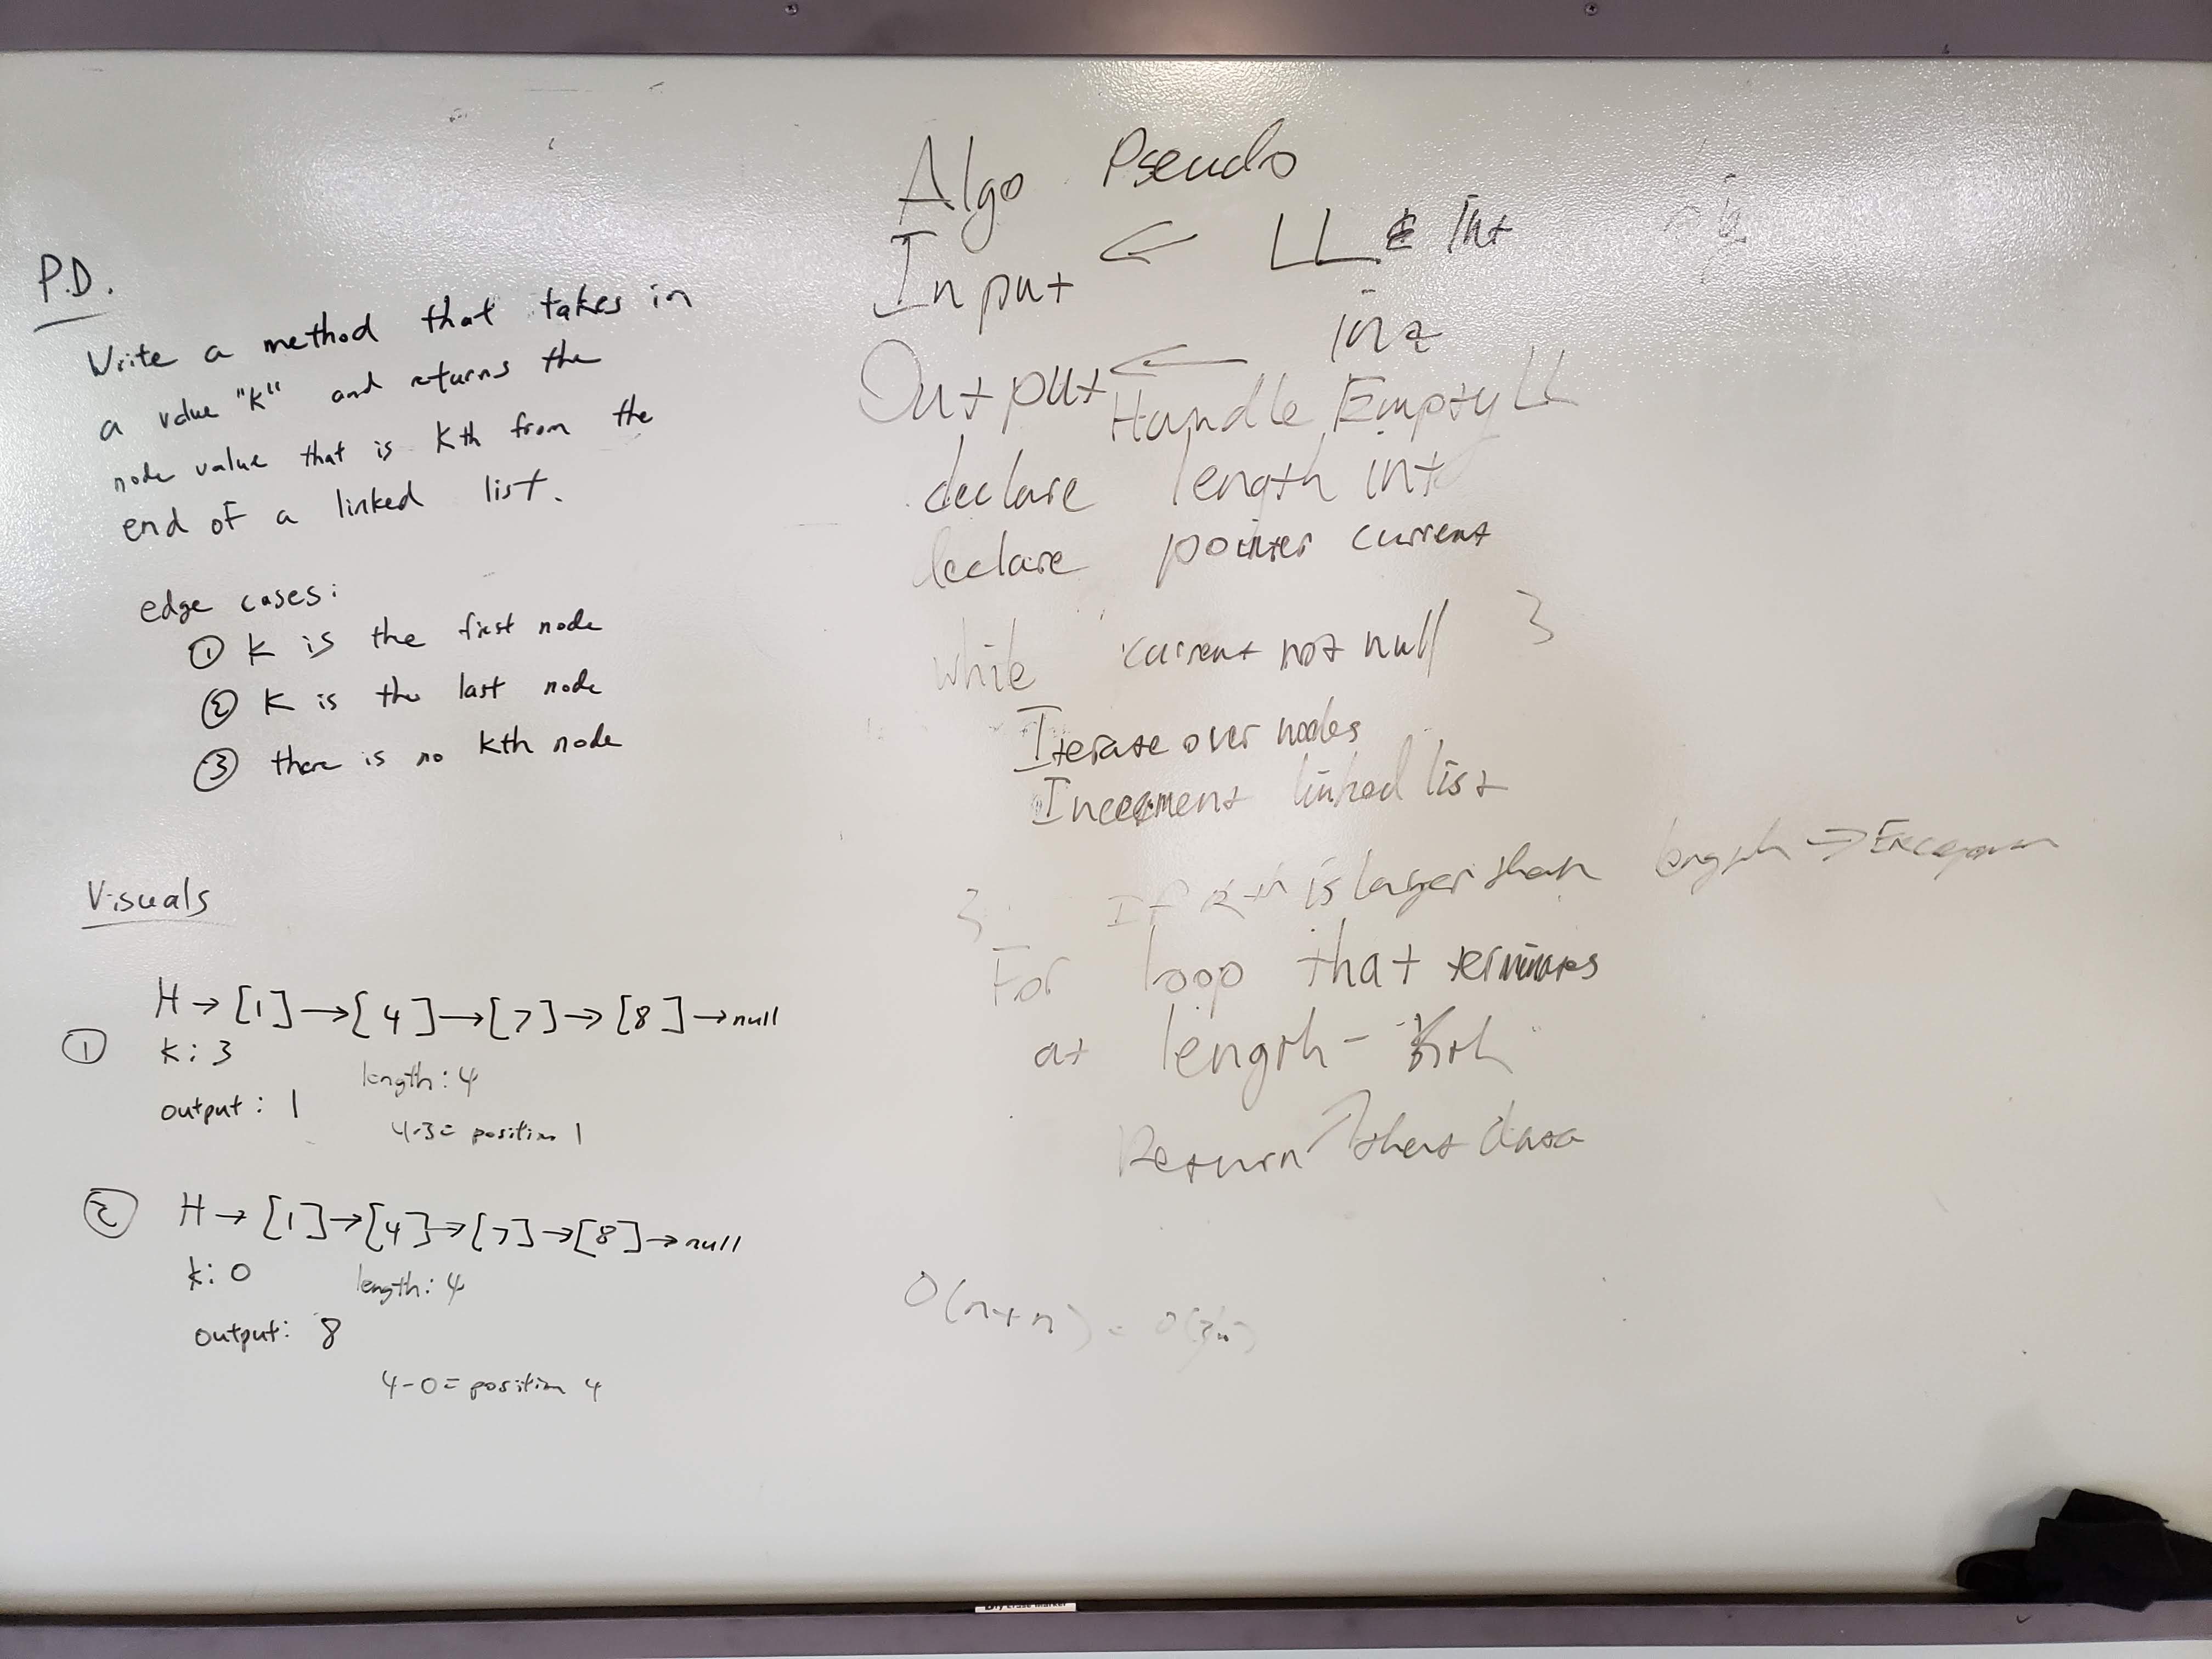 P.D.
Write a method that takes in
a value "k" and returns the
node value that is kth from the
end of a linked list.
edge cases:
① k is the first node
② k is the last node
③ there is no kth node
Visuals
① H → [1] → [4] → [7] → [8] → null
k: 3
length: 4
output: 1
4-3= position 1
② H → [1] → [4] → [7] → [8] → null
k: 0
length: 4
output: 8
4-0= position 4
Algo Pseudo
Input ← LL & Int
Output ← int
Handle Empty LL
declare length int
declare pointer current
while current not null {
Iterate over nodes
Increment linked list
} If kth is larger than length → Exception
For loop that terminates
at length - kth
Return that data
O(n+n) = O(2n)
Dry Erase Marker